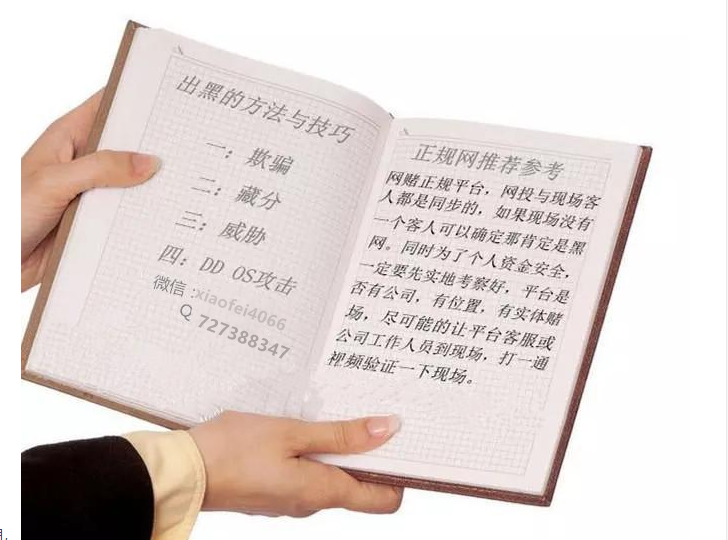 出黑的方法与技巧
一：欺骗
二：藏分
三：威胁
四：DD OS攻击
微信：xiaofei4066
Q 727388347
正规网推荐参考
网赌正规平台，网投与现场客
人都是同步的，如果现场没有
一个客人可以确定那肯定是黑
网。同时为了个人资金安全，
一定要先实地考察好，平台是
否有公司，有位置，有实体赌
场，尽可能的让平台客服或
公司工作人员到现场，打一通
视频验证一下现场。